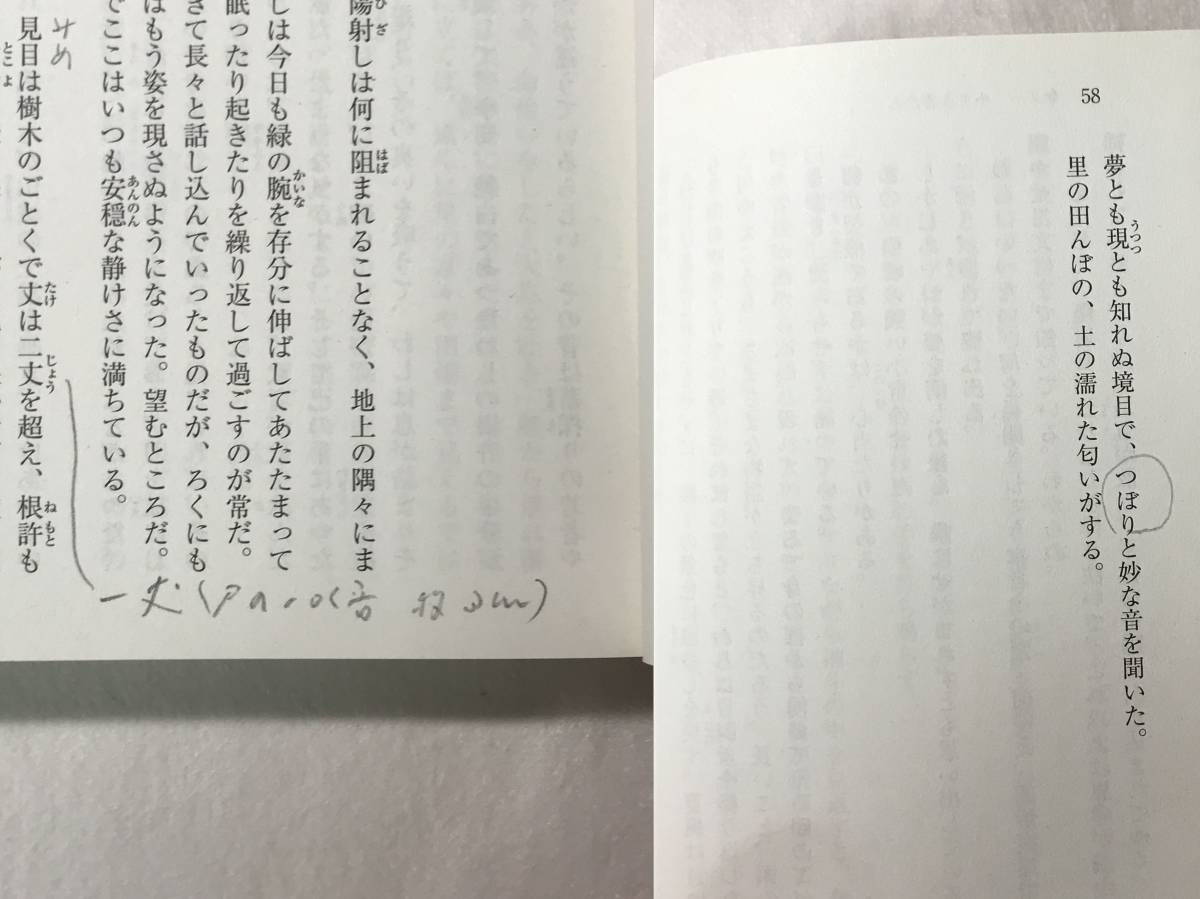 陽射しは何に阻まれることなく、地上の隅々にま
しは今日も緑の腕を存分に伸ばしてあたたまって
眠ったり起きたりを繰り返して過ごすのが常だ。
きて長々と話し込んでいったものだが、ろくにも
はもう姿を現さぬようになった。望むところだ。
でここはいつも安穏な静けさに満ちている。
見目は樹木のごとくで丈は二丈を超え、根許も
みめ
一丈
58
夢とも現とも知れぬ境目で、つぼりと妙な音を聞いた。
里の田んぼの、土の濡れた匂いがする。